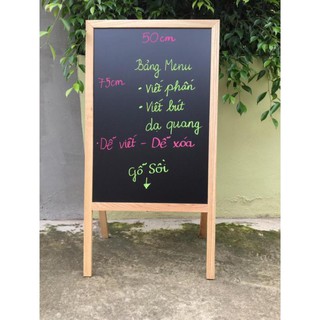 50cm
Bảng Menu
75cm
- Viết phấn
- Viết bút
dạ quang
- Dễ viết - Dễ xóa
Gỗ Sồi
↓